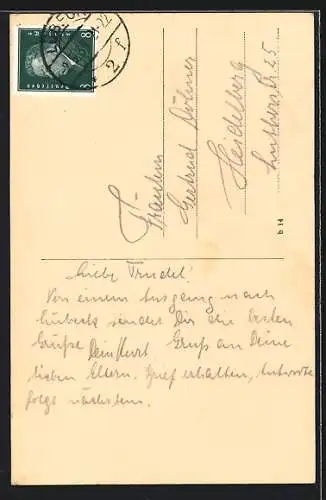 LÜBECK
2 f
8 8
Fräulein
Gertrud Döhner
Heidelberg
25
b 14
Liebe Trudel!
Von einem Ausgang nach
Lübeck sendet Dir die besten
Grüße Dein Kurt Gruß an Deine
lieben Eltern. Brief erhalten, Antwort
folgt nächstens.